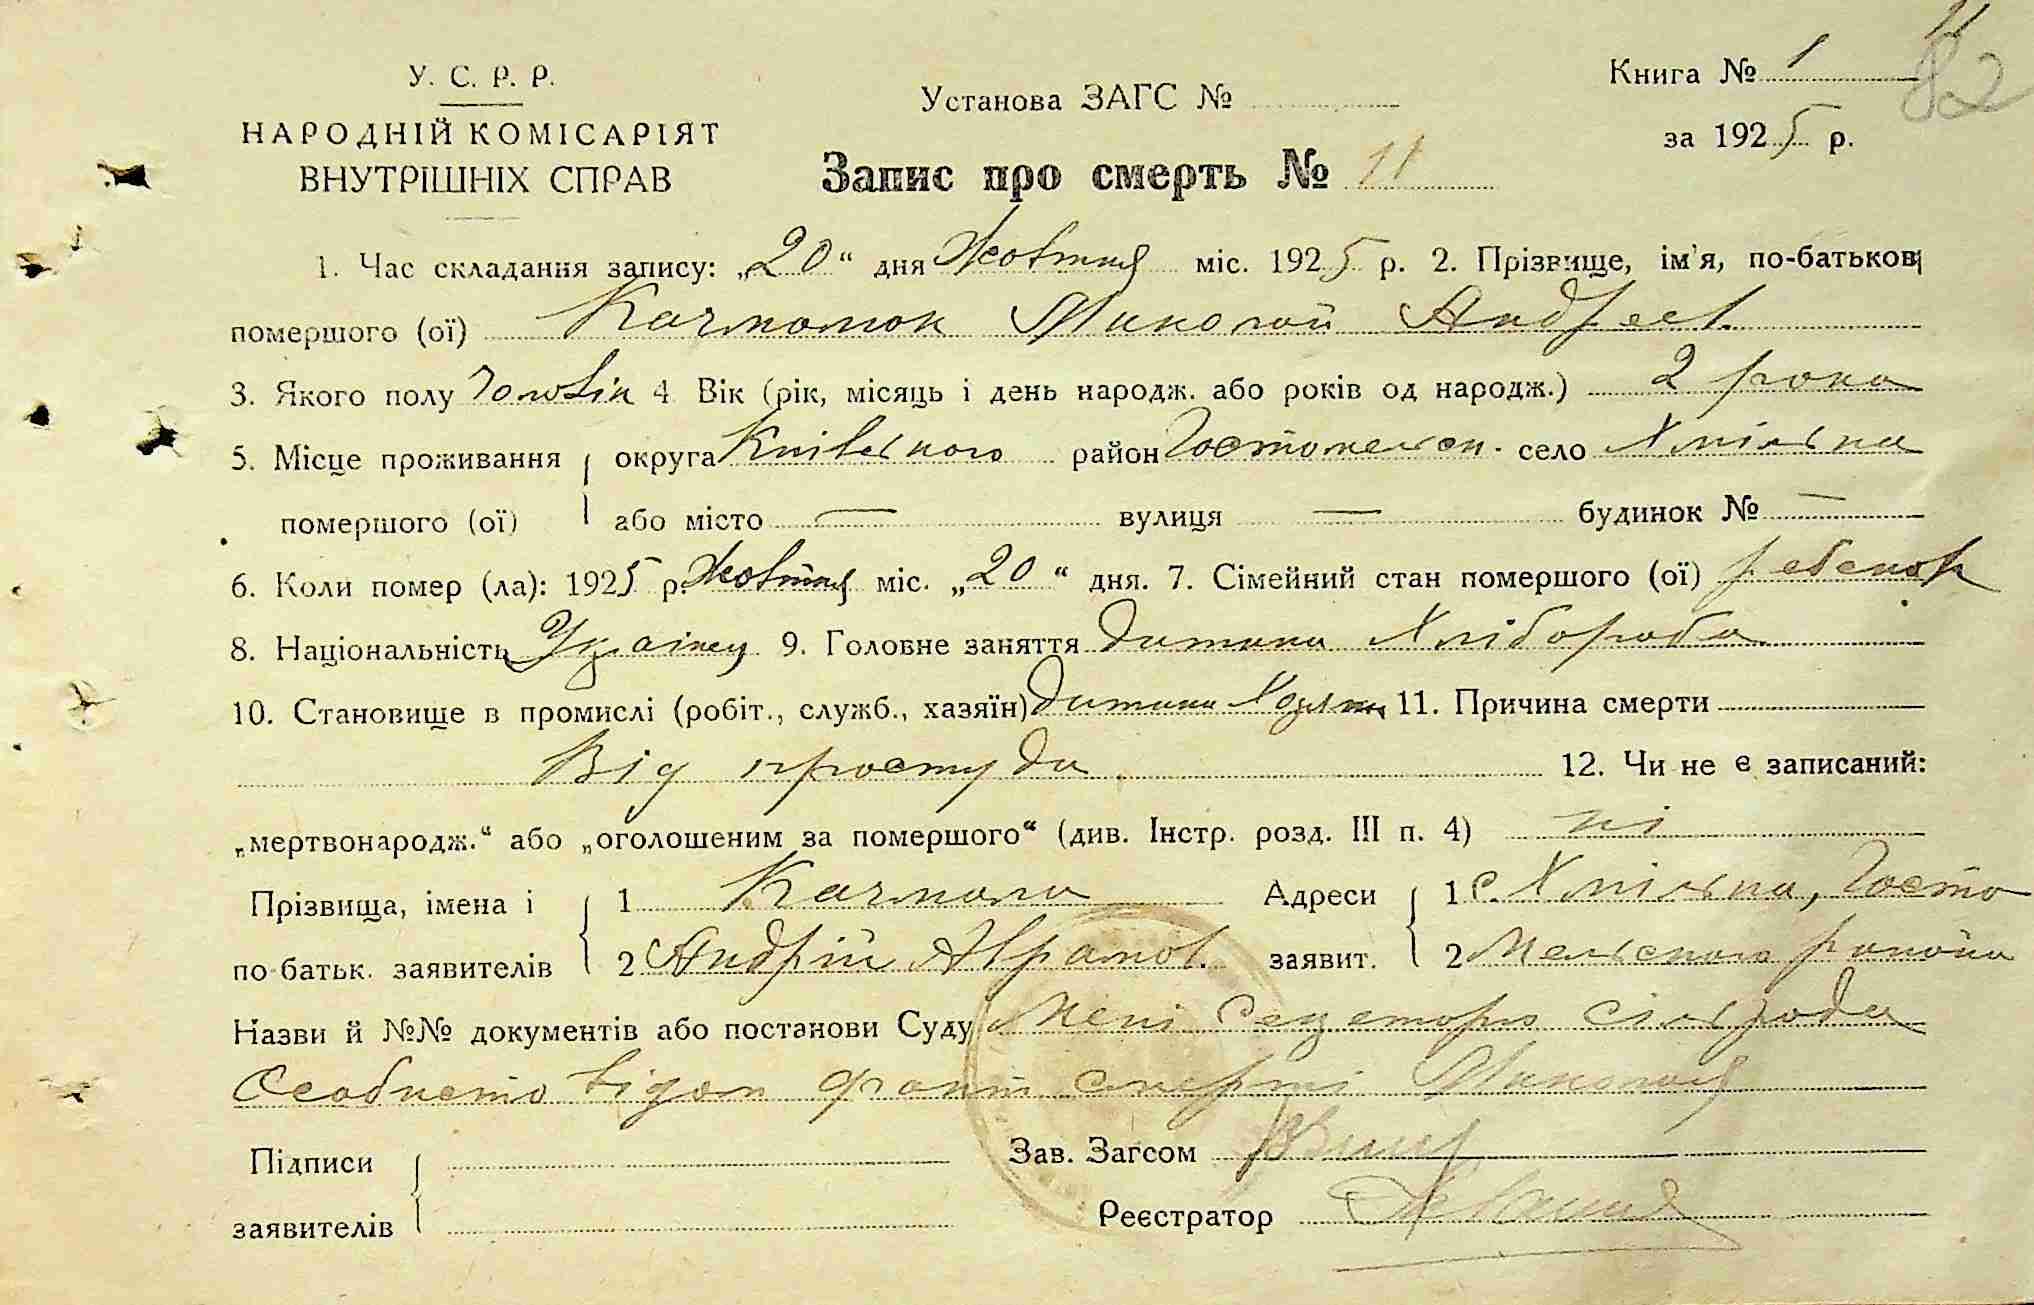 У. С. Р. Р.
НАРОДНІЙ КОМІСАРІЯТ
ВНУТРІШНІХ СПРАВ
Установа ЗАГС №
Запис про смерть № 11
Книга № 1
11
82
за 1925 р.
1. Час складання запису: „20“ дня Жовтня міс. 1925 р. 2. Прізвище, ім'я, по-батькові
помершого (ої) Миколай Андреев.
3. Якого полу 4 Вік (рік, місяць і день народж. або років од народж.) 2 рока
5. Місце проживання округа Київського район Гостомельск. село Хмільна
помершого (ої) або місто — вулиця — будинок № —
6. Коли помер (ла): 1925 р. Жовтня міс. „20“ дня. 7. Сімейний стан помершого (ої) ребенок
8. Національність Українец 9. Головне заняття дитина Хлібороба
10. Становище в промислі (робіт., служб., хазяїн) дитина 11. Причина смерти
Від простуди 12. Чи не є записаний:
„мертвонародж.“ або „оголошеним за помершого“ (див. Інстр. розд. III п. 4) ні
Прізвища, імена і 1 Качкала Адреси 1 с. Хмільна, Госто
по-батьк. заявителів 2 Андрій Аврамов. заявит. 2 мельского района
Назви й №№ документів або постанови Суду Мені Секретарю сільрада
Особисто відом факт смерті Миколая
Підписи Зав. Загсом
заявителів Реєстратор